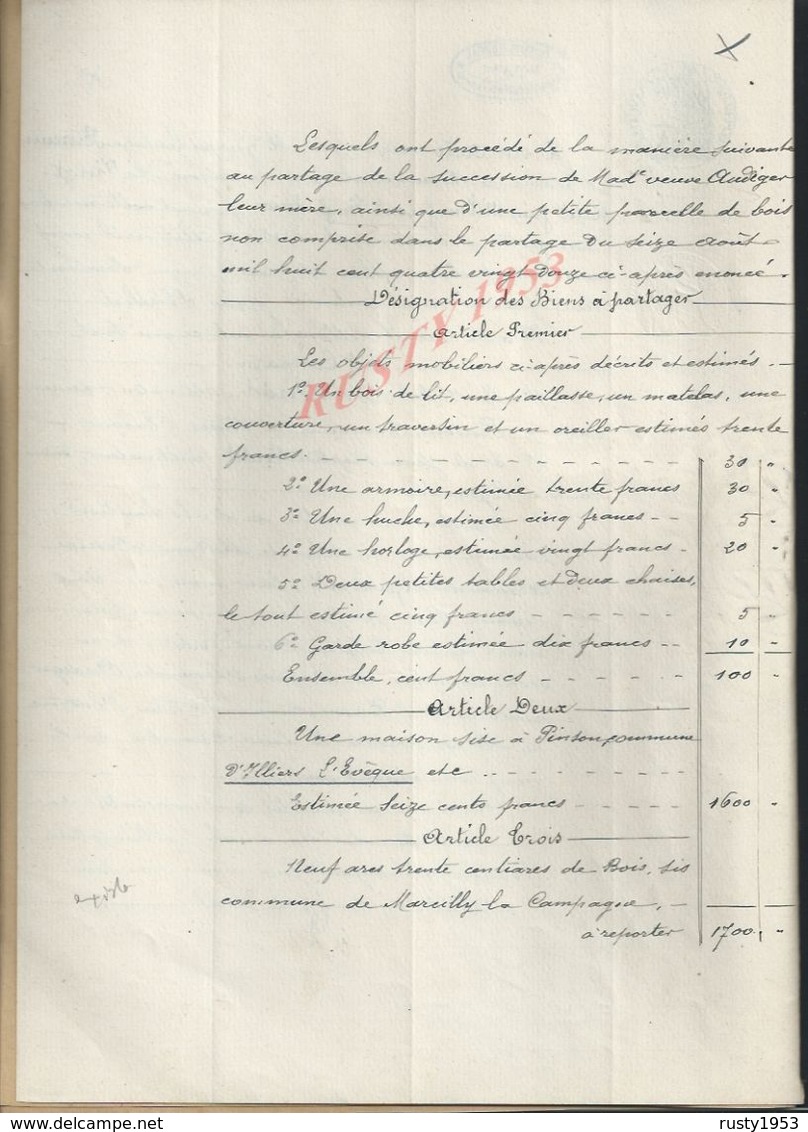 Lesquels ont procédé de la manière suivante
au partage de la succession de Mad^e veuve Audiger
leur mère, ainsi que d'une petite parcelle de bois
non comprise dans le partage du seize août
mil huit cent quatre vingt douze ci-après énoncé.
Désignation des Biens à partager
Article Premier
Les objets mobiliers ci-après décrits et estimés.
1º Un bois de lit, une paillasse, un matelas, une
couverture, un traversin et un oreiller estimés trente
francs. 30 "
2º Une armoire, estimée trente francs 30 "
3º Une huche, estimée cinq francs 5 "
4º Une horloge, estimée vingt francs 20 "
5º Deux petites tables et deux chaises,
le tout estimé cinq francs 5 "
6º Garde robe estimée dix francs 10 "
Ensemble, cent francs 100 "
Article Deux
Une maison sise à Pinson, commune
D'Illiers L'Evêque etc
Estimée seize cents francs 1600 "
Article Trois
Neuf ares trente centiares de Bois, sis
commune de Marcilly la Campagne,
à reporter 1700 "
RUSTY 1953
rusty1953